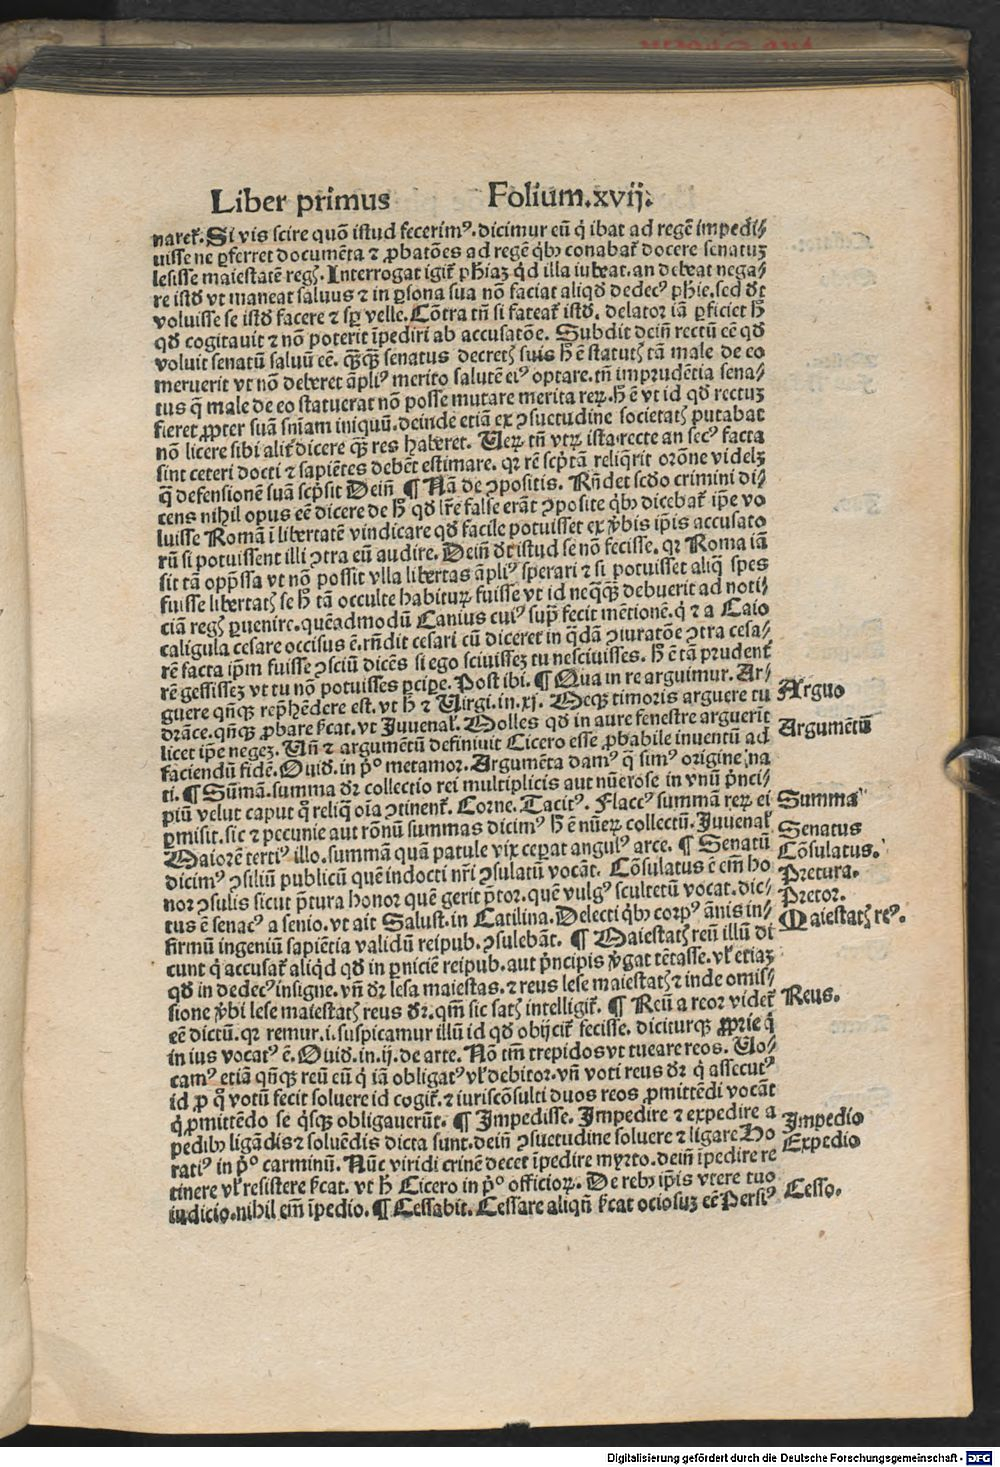 Liber primus Folium.xvij.
naret̃. Si vis scire quõ istud fecerimꝰ. dicimur eũ q̇ ibat ad regẽ impedi/
uisse ne ꝑferret documẽta ⁊ ꝓbatões ad regẽ qͥbꝫ conabat̃ docere senatuꝫ
lesisse maiestatẽ regꝭ. Interrogat igit̃ phiaꝫ qͥd illa iubeat. an debeat nega/
re istđ vt maneat saluus ⁊ in ꝑsona sua nõ faciat aliqđ dedecꝰ phie. sed dt̃
voluisse se istđ facere ⁊ sꝑ velle. Cõtra tñ si fateat̃ istđ. delator iã ꝑficiet ħ
qđ cogitauit ⁊ nõ poterit ĩpediri ab accusatõe. Subdit deiñ rectũ eẽ qđ
voluit senatũ saluũ eẽ. qꝫqꝫ senatus decretꝭ suis ħ ẽ statutꝭ tã male de eo
meruerit vt nõ deberet ãpliꝰ merito salutẽ eiꝰ optare. tñ imprudẽtia sena/
tus q̃ male de eo statuerat nõ posse mutare merita reꝝ. ħ ẽ vt id qđ rectuꝫ
fieret ꝓpter suã sñiam iniquũ. deinde etiã ex ꝯsuetudine societatꝭ putabat
nõ licere sibi alit̃ dicere qꝫ res haberet. Ueꝝ tñ vtꝝ ista recte an secꝰ facta
sint ceteri docti ⁊ sapiẽtes debẽt estimare. qr rẽ scp̃tã reliqͥrit orõne videlꝫ
q̃ defensionẽ suã scp̃sit Deiñ ¶ Nã de ꝯpositis. Rñdet scđo crimini di/
cens nihil opus eẽ dicere de ħ qđ lr̃e false erãt ꝯposite qͥbꝫ dicebat̃ ip̃e vo
luisse Romã ĩ libertatẽ vindicare qđ facile potuisset ex v̾bis ip̃is accusato
rũ si potuissent illi ꝯtra eũ audire. Deiñ dt̃ istud se nõ fecisse. qr Roma iã
sit tã opp̃ssa vt nõ possit vlla libertas ãpliꝰ sperari ⁊ si potuisset aliq̃ spes
fuisse libertatꝭ se ħ tã occulte habituꝝ fuisse vt id neqꝫqꝫ debuerit ad noti/
ciã regꝭ ꝑuenire. quẽadmodũ Canius cuiꝰ sup̃ fecit mẽtionẽ. q̇ ⁊ a Caio
caligula cesare occisus ẽ. rñdit cesari cũ diceret in qͥdã ꝯiuratõe ꝯtra cesa/
rẽ facta ip̃m fuisse ꝯsciũ dicẽs si ego sciuisseꝫ tu nesciuisses. ħ ẽ tã prudent̃
rẽ gessisseꝫ vt tu nõ potuisses ꝑciꝑe. Post ibi. ¶ Qua in re arguimur. Ar/
guere qñqꝫ rep̃hẽdere est. vt ħ ⁊ Uirgi. in. xj. Meqꝫ timoris arguere tu
drãce. qñqꝫ ꝓbare st̃cat. vt Juuenal̃. Molles qđ in aure fenestre arguerĩt
licet ip̃e negeꝫ. Uñ ⁊ argumẽtũ definiuit Cicero esse ꝓbabile inuentũ ad
faciendũ fidẽ. Ouid. in pͦ metamor. Argumẽta damꝰ q̃ simꝰ origine na
ti. ¶ Sũmã. summa dr̃ collectio rei multiplicis aut nũerose in vnũ pͥnci/
piũ velut caput qͦ reliq̃ oĩa ꝯtinent̃. Corne. Tacitꝰ. Flaccꝰ summã reꝝ ei
ꝑmisit. sic ⁊ pecunie aut rõnũ summas dicimꝰ ħ ẽ nũeꝝ collectũ. Juuenal̃
Maiorẽ tertiꝰ illo. summã quã patule vix ceperat angulꝰ arce. ¶ Senatũ
dicimꝰ ꝯsiliũ publicũ quẽ indocti nr̃i ꝯsulatũ vocãt. Cõsulatus ẽ em̃ ho
nor ꝯsulis sicut p̃tura honor quẽ gerit p̃tor. quẽ vulgꝰ scultetũ vocat. dic/
tus ẽ senacꝰ a senio. vt ait Salust. in Catilina. Delecti qͥbꝫ corpꝰ ãnis in/
firmũ ingeniũ sapiẽtia validũ reipub. ꝯsulebãt. ¶ Maiestatꝭ reũ illũ di
cunt q̇ accusat̃ aliqͥd qđ in ꝑniciẽ reipub. aut pͥncipis v̾gat tẽtasse. vl̃ etiaꝫ
qđ in dedecꝰ insigne. vñ dr̃ lesa maiestas. ⁊ reus lese maiestatꝭ ⁊ inde omis/
sione v̾bi lese maiestatꝭ reus dr̃. qm̃ sic satꝭ intelligit̃. ¶ Reũ a reor videt̃
eẽ dictũ. qr remur. i. suspicamur illũ id qđ obijcit̃ fecisse. diciturqꝫ ꝓprie q̇
in ius vocatꝰ ẽ. Ouid. in. ij. de arte. Nõ tm̃ trepidos vt tueare reos. Uo/
camꝰ etiã qñqꝫ reũ eũ q̇ iã obligatꝰ vl̃ debitor. vñ voti reus dr̃ q̇ assecutꝰ
id ꝓ qͦ votũ fecit soluere id cogit̃. ⁊ iuriscõsulti duos reos ꝓmittẽdi vocãt
q̇ ꝓmittẽdo se qͥsqꝫ obligauerũt. ¶ Impedisse. Impedire ⁊ expedire a
pedibꝫ ligãdis ⁊ soluẽdis dicta sunt. deiñ ꝯsuetudine soluere ⁊ ligare Ho
ratiꝰ in pͦ carminũ. Nũc viridi crinẽ decet ĩpedire myrto. deiñ ĩpedire re
tinere vl̃ resistere st̃cat. vt ħ Cicero in pͦ officioꝝ. De rebꝫ ip̃is vtere tuo
iudicio. nihil em̃ ĩpedio. ¶ Cessabit. Cessare aliqñ st̃cat ociosuꝫ eẽ Persiꝰ
Arguo
Argumẽtũ
Summa
Senatus
Cõsulatus.
Pretura.
Pretor.
Maiestatꝭ reꝰ.
Reus.
Impedio
Expedio
Cesso.
Digitalisierung gefördert durch die Deutsche Forschungsgemeinschaft - DFG